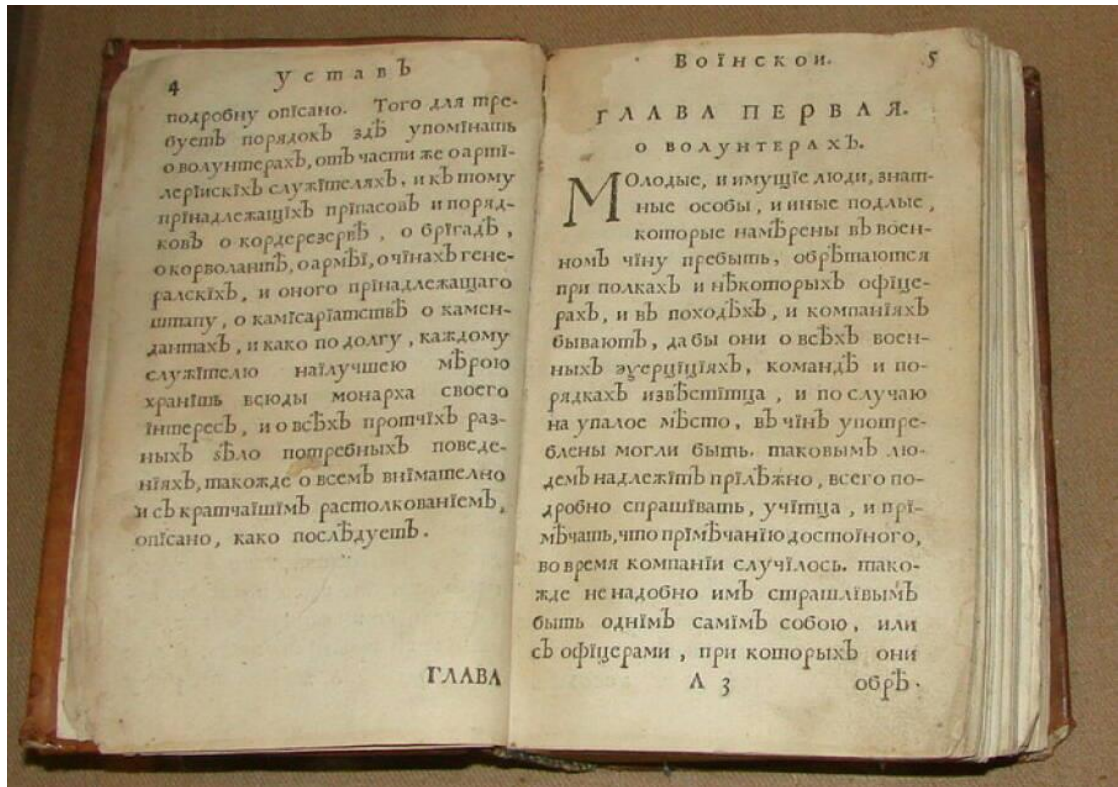 4 УставЪ
подробну опїсано. Того для тре-
буетЪ порядокЪ здѢ упомїнать
о волунтерахЪ, отЪ части же о артї-
лерїискїхЪ служїтеляхЪ, и кЪ тому
прїнадлежащїхЪ прїпасовЪ и поряд-
ковЪ о кордерезервѢ, о брїгадѢ,
о корволантѢ, о армѢї, о чїнахЪ гене-
ралскїхЪ, и оного прїнадлежащаго
штапу, о камїсарїатствѢ о камен-
дантахЪ, и како по долгу, каждому
служїтелю наїлучшею мѢрою
хранїть всюды монарха своего
їнтересЪ, и о всѢхЪ протчїхЪ раз-
ныхЪ ѕѢло потребныхЪ поведе-
нїяхЪ, такожде о всемЪ внїмателно
и сЪ кратчаїшїмЪ растолкованїемЪ,
опїсано, како послѢдуетЪ.
ГЛАВА
Воїнскои. 5
ГЛАВА ПЕРВАЯ.
О ВОЛУНТЕРАХЪ.
МОлодые, и имущїе люди, знат-
ные особы, и иные подлые,
которые намѢрены вЪ воен-
номЪ чїну пребыть, обрѢтаются
при полкахЪ и нѢкоторыхЪ офїце-
рахЪ, и вЪ походѢхЪ, и компанїяхЪ
бываютЪ, да бы они о всѢхЪ воен-
ныхЪ эѯерцїцїяхЪ, командѢ и по-
рядкахЪ извѢстїтца, и по случаю
на упалое мѢсто, вЪ чїнЪ употре-
блены могли быть. таковымЪ лю-
демЪ надлежїтЪ прїлѢжно, всего по-
дробно спрашївать, учїтца, и прї-
мѢчать, что прїмѢчанїю достоїного,
во время компанїи случїлось. тако-
жде не надобно имЪ страшлївымЪ
быть однїмЪ самїмЪ собою, или
сЪ офїцерами, при которыхЪ они
А 3 обрѢ-